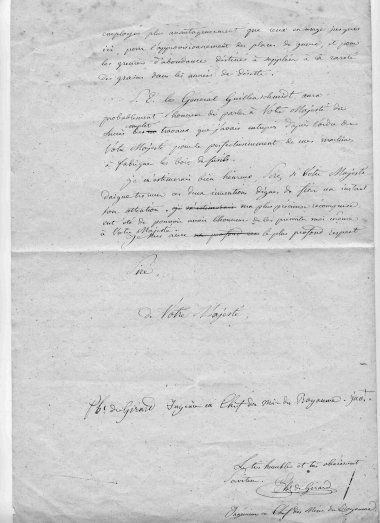 employés plus avantageusement que ceux en usage jusques
ici, pour l'approvisionnement des places de guerre, et pour
les greniers d'abondance destinés à suppléer à la rareté
des grains dans les années de disette.
S. E. le General Guilleminot aura
probablement l'honneur de parler à Votre Majesté du
succès complet des travaux que j'avais entrepris d'après l'ordre de
Votre Majesté pour le perfectionnement de mes machines
à fabriquer les bois de fusils.
Je m'estimerais bien heureux Sire, si Votre Majesté
daigne trouver ces deux inventions dignes de fixer un instant
son attention, ma plus précieuse recompense
eut été de pouvoir avoir l'honneur de les présenter moi même
à Votre Majesté.
Je suis avec le plus profond respect
Sire
De Votre Majesté
Ph. de Girard Ingénieur en Chef des Mines du Royaume
Le très humble et très obéissant
Serviteur
Ph. de Girard
Ingenieur en Chef des Mines du Royaume